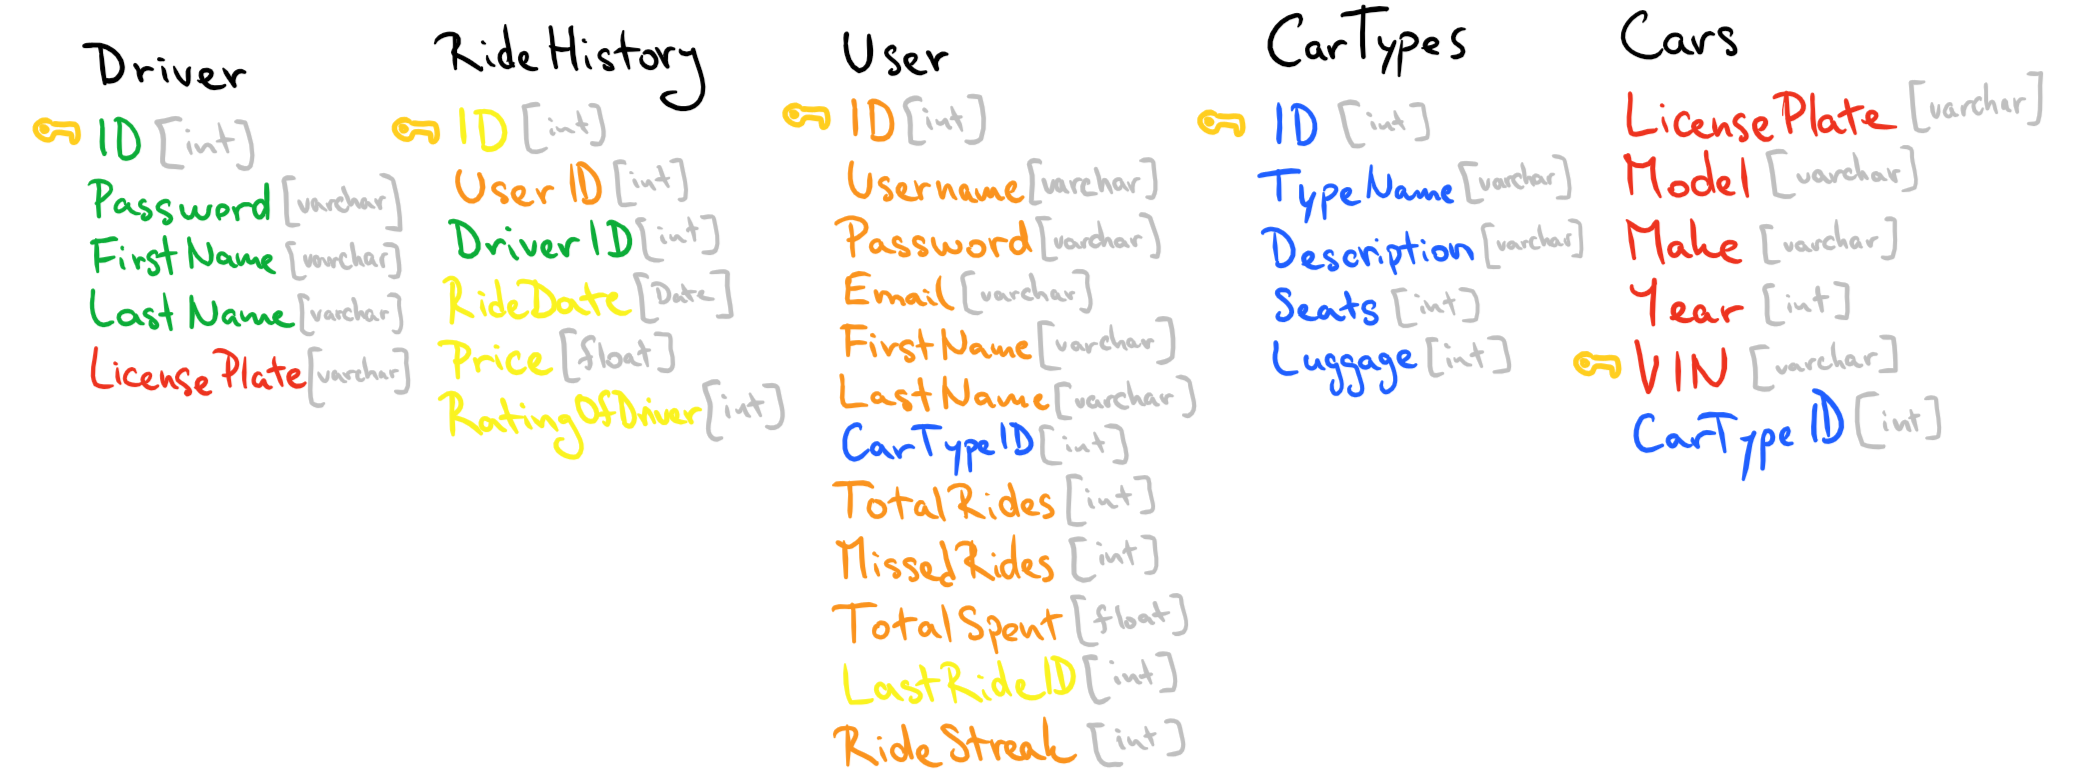 Driver
ID [int]
Password [varchar]
FirstName [varchar]
LastName [varchar]
LicensePlate [varchar]
RideHistory
ID [int]
UserID [int]
DriverID [int]
RideDate [Date]
Price [float]
RatingOfDriver [int]
User
ID [int]
Username [varchar]
Password [varchar]
Email [varchar]
FirstName [varchar]
LastName [varchar]
CarTypeID [int]
TotalRides [int]
MissedRides [int]
TotalSpent [float]
LastRideID [int]
RideStreak [int]
CarTypes
ID [int]
TypeName [varchar]
Description [varchar]
Seats [int]
Luggage [int]
Cars
LicensePlate [varchar]
Model [varchar]
Make [varchar]
Year [int]
VIN [varchar]
CarTypeID [int]